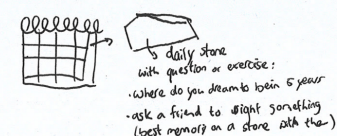 daily stone
with question or exercise:
• where do you dream to be in 5 years
• ask a friend to wright something
(best memory on a stone with the)